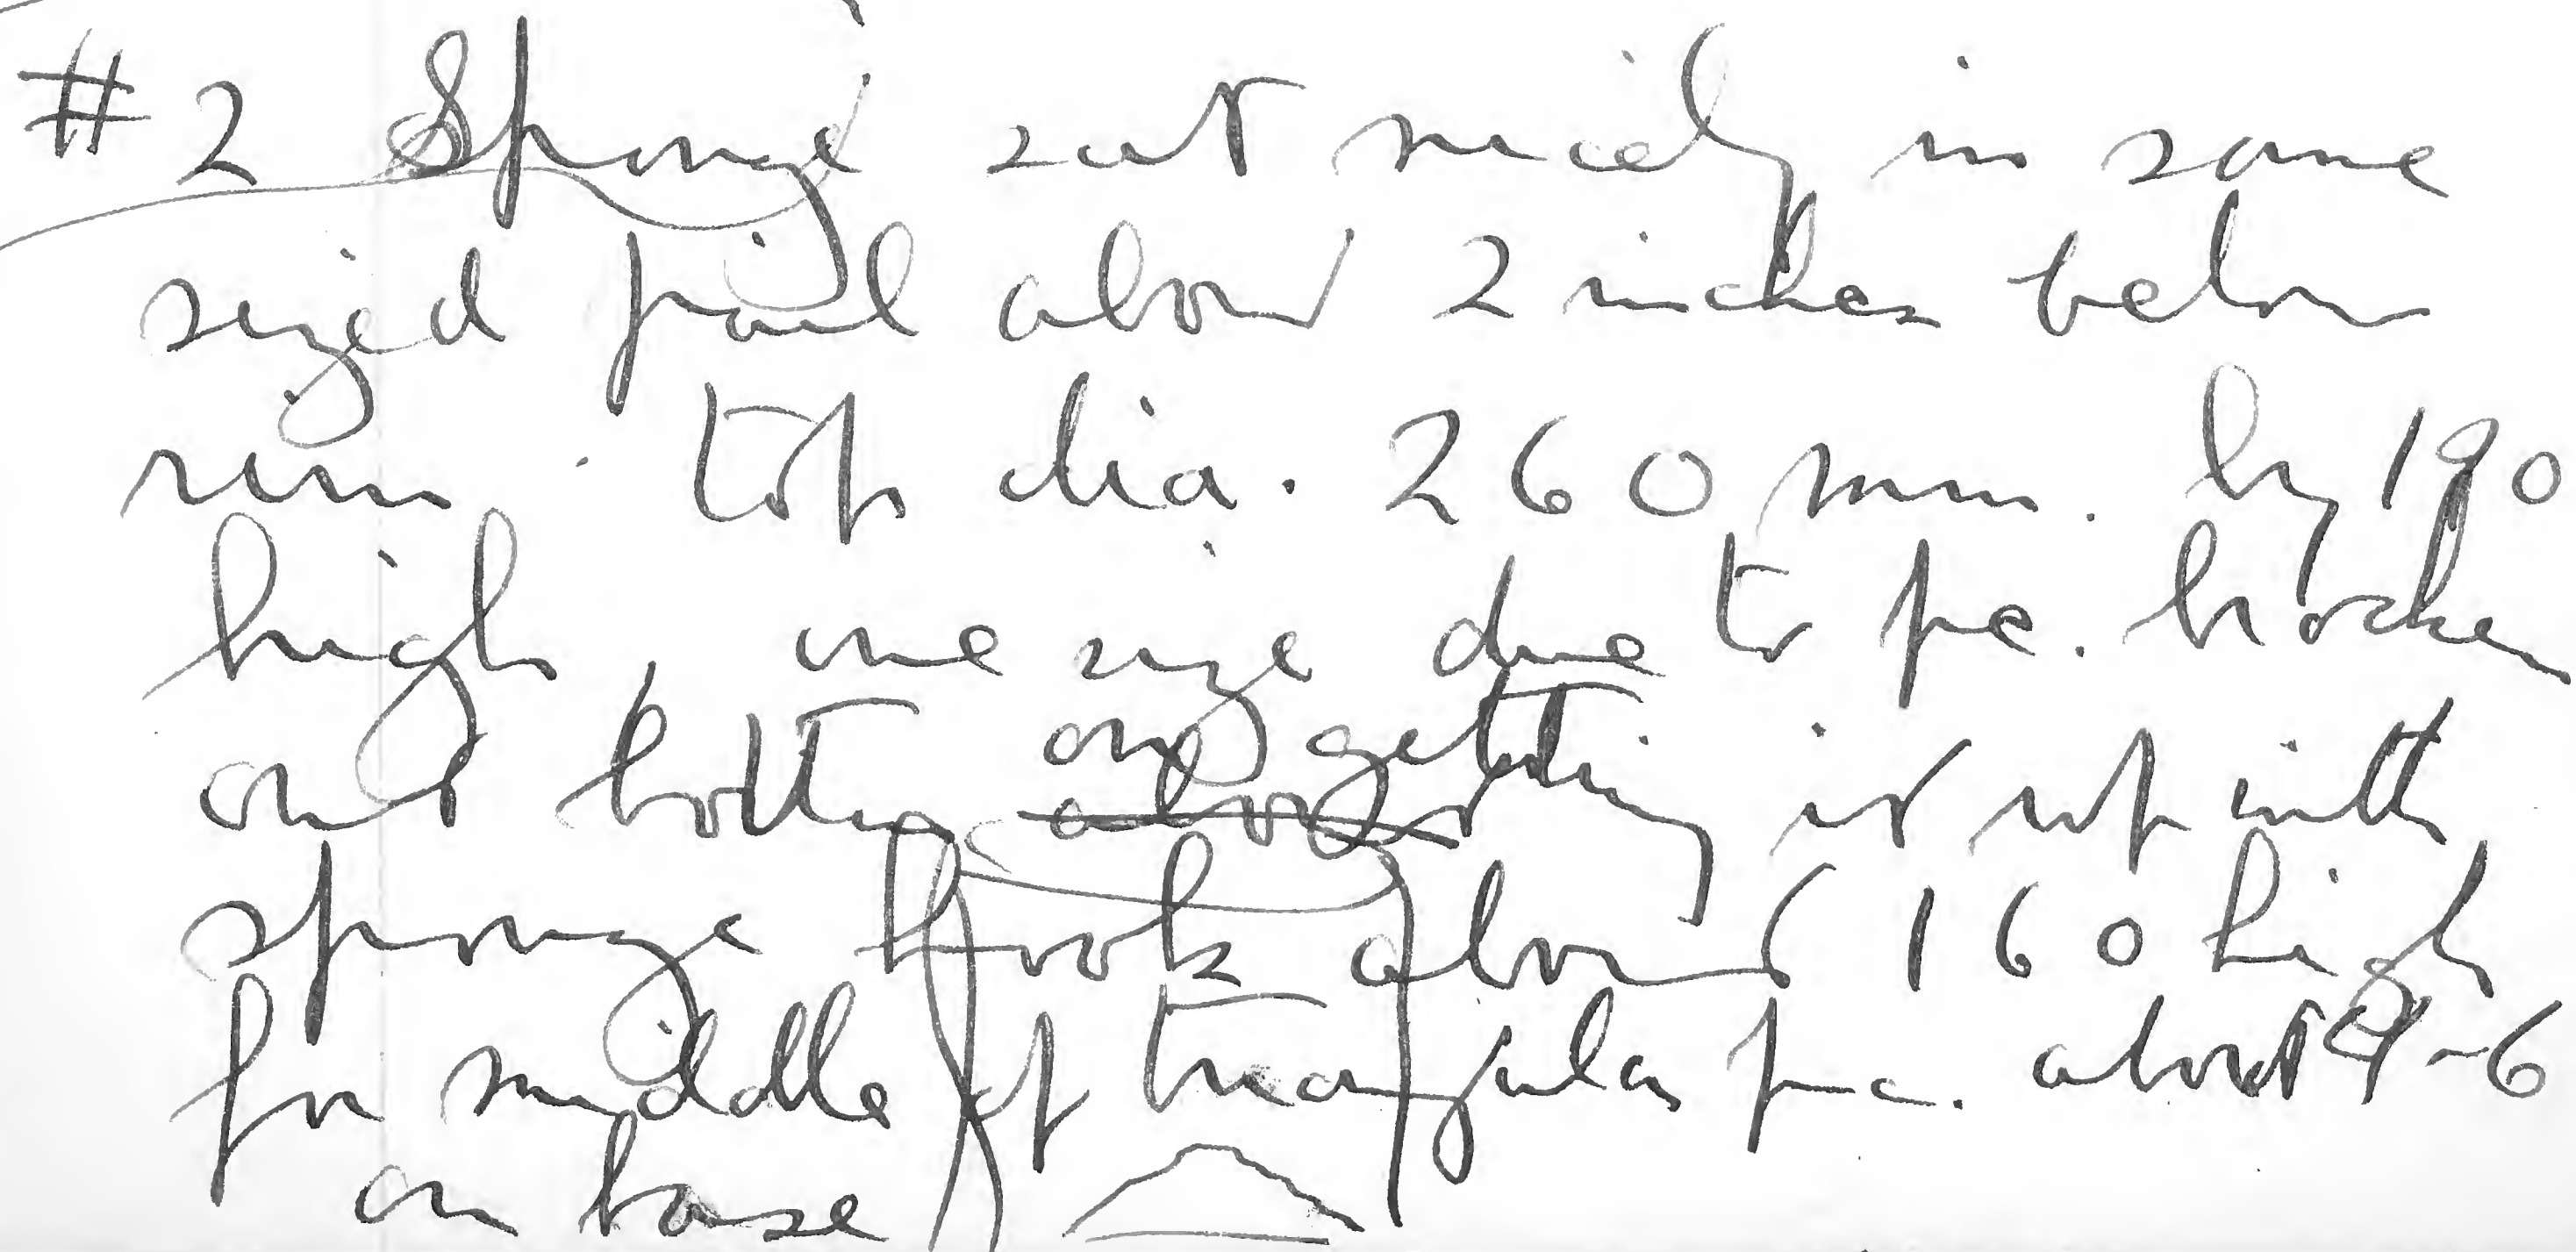 #2 Sponge sat nicely in same
sized pail about 2 inches below
rim. top dia. 260 mm. by 190
high, one size due to pc. brocken
and bottom on getting it up with
sponge hook about 160 high
for middle of triangular pc. about 4-6
on base